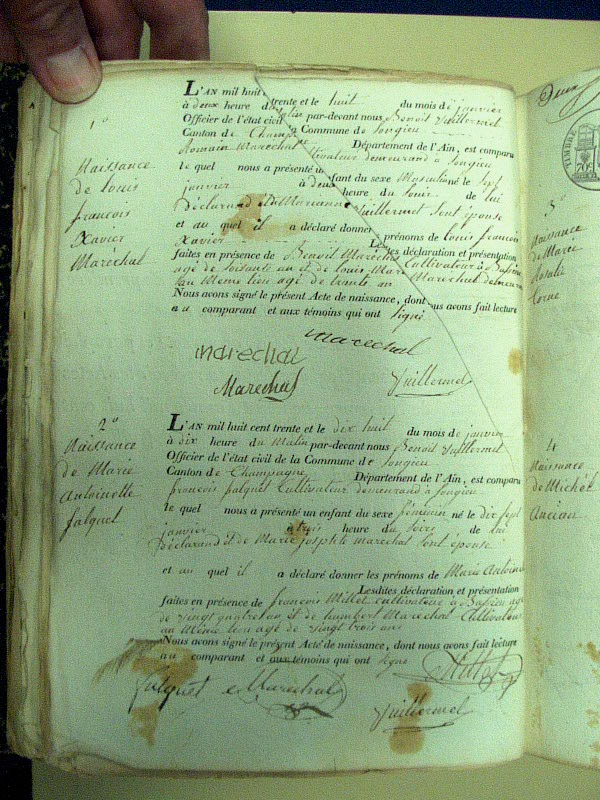 1º
Naissance
de louis
françois
Xavier
Marechal
L'AN mil huit trente et le huit du mois de janvier
à deux heure du par-devant nous Benoit Vuillermet
Officier de l'état civil Commune de Songieu
Canton de Champ Département de l'Ain, est comparu
Romain Marechal demeurand à Songieu
le quel nous a présenté un fant du sexe Masculin né le Sept
janvier à deux heure du Soir de lui
déclarand et de Marianne Vuillermet Sont épouse
et au quel il a déclaré donner prénoms de louis françois
Xavier Lesdites déclaration et présentation
faites en présence de Benoit Marechal Cultivateur à
agé de Soisante un et de louis Marie Marechal
au Meme lieu agé de trante an
Nous avons signé le présent Acte de naissance, dont us avons fait lecture
au comparant et aux témoins qui ont signé
marechal
marechal
Marechal Vuillermet
2º
Naissance
de Marie
Antoinette
falquet
L'AN mil huit cent trente et le dix huit du mois de janvier
à dix heure du Matin par-devant nous Benoit Vuillermet
Officier de l'état civil de la Commune de Songieu
Canton de Champagne Département de l'Ain, est comparu
françois falquet Cultivateur demeurand à Songieu
le quel nous a présenté un enfant du sexe féminin né le dix Sept
janvier a trois heure du Soire de lui
déclarand et de Marie josphte marechal Sont épouse
et au quel il a déclaré donner les prénoms de Marie Antoin
Lesdites déclaration et présentation
faites en présence de françois Millet Cultivateur à agé
de vingt quatre an et de humbert Marechal Cultivateur
au Même lieu agé de vingt trois ans
Nous avons signé le présent Acte de naissance, dont nous avons fait lecture
au comparant et aux témoins qui ont signé
falquet Marechal Millet
Vuillermet
TIMBRE
3º
Naissance
de Marie
Rosalie
4
Naissance
de Michel
Ancian